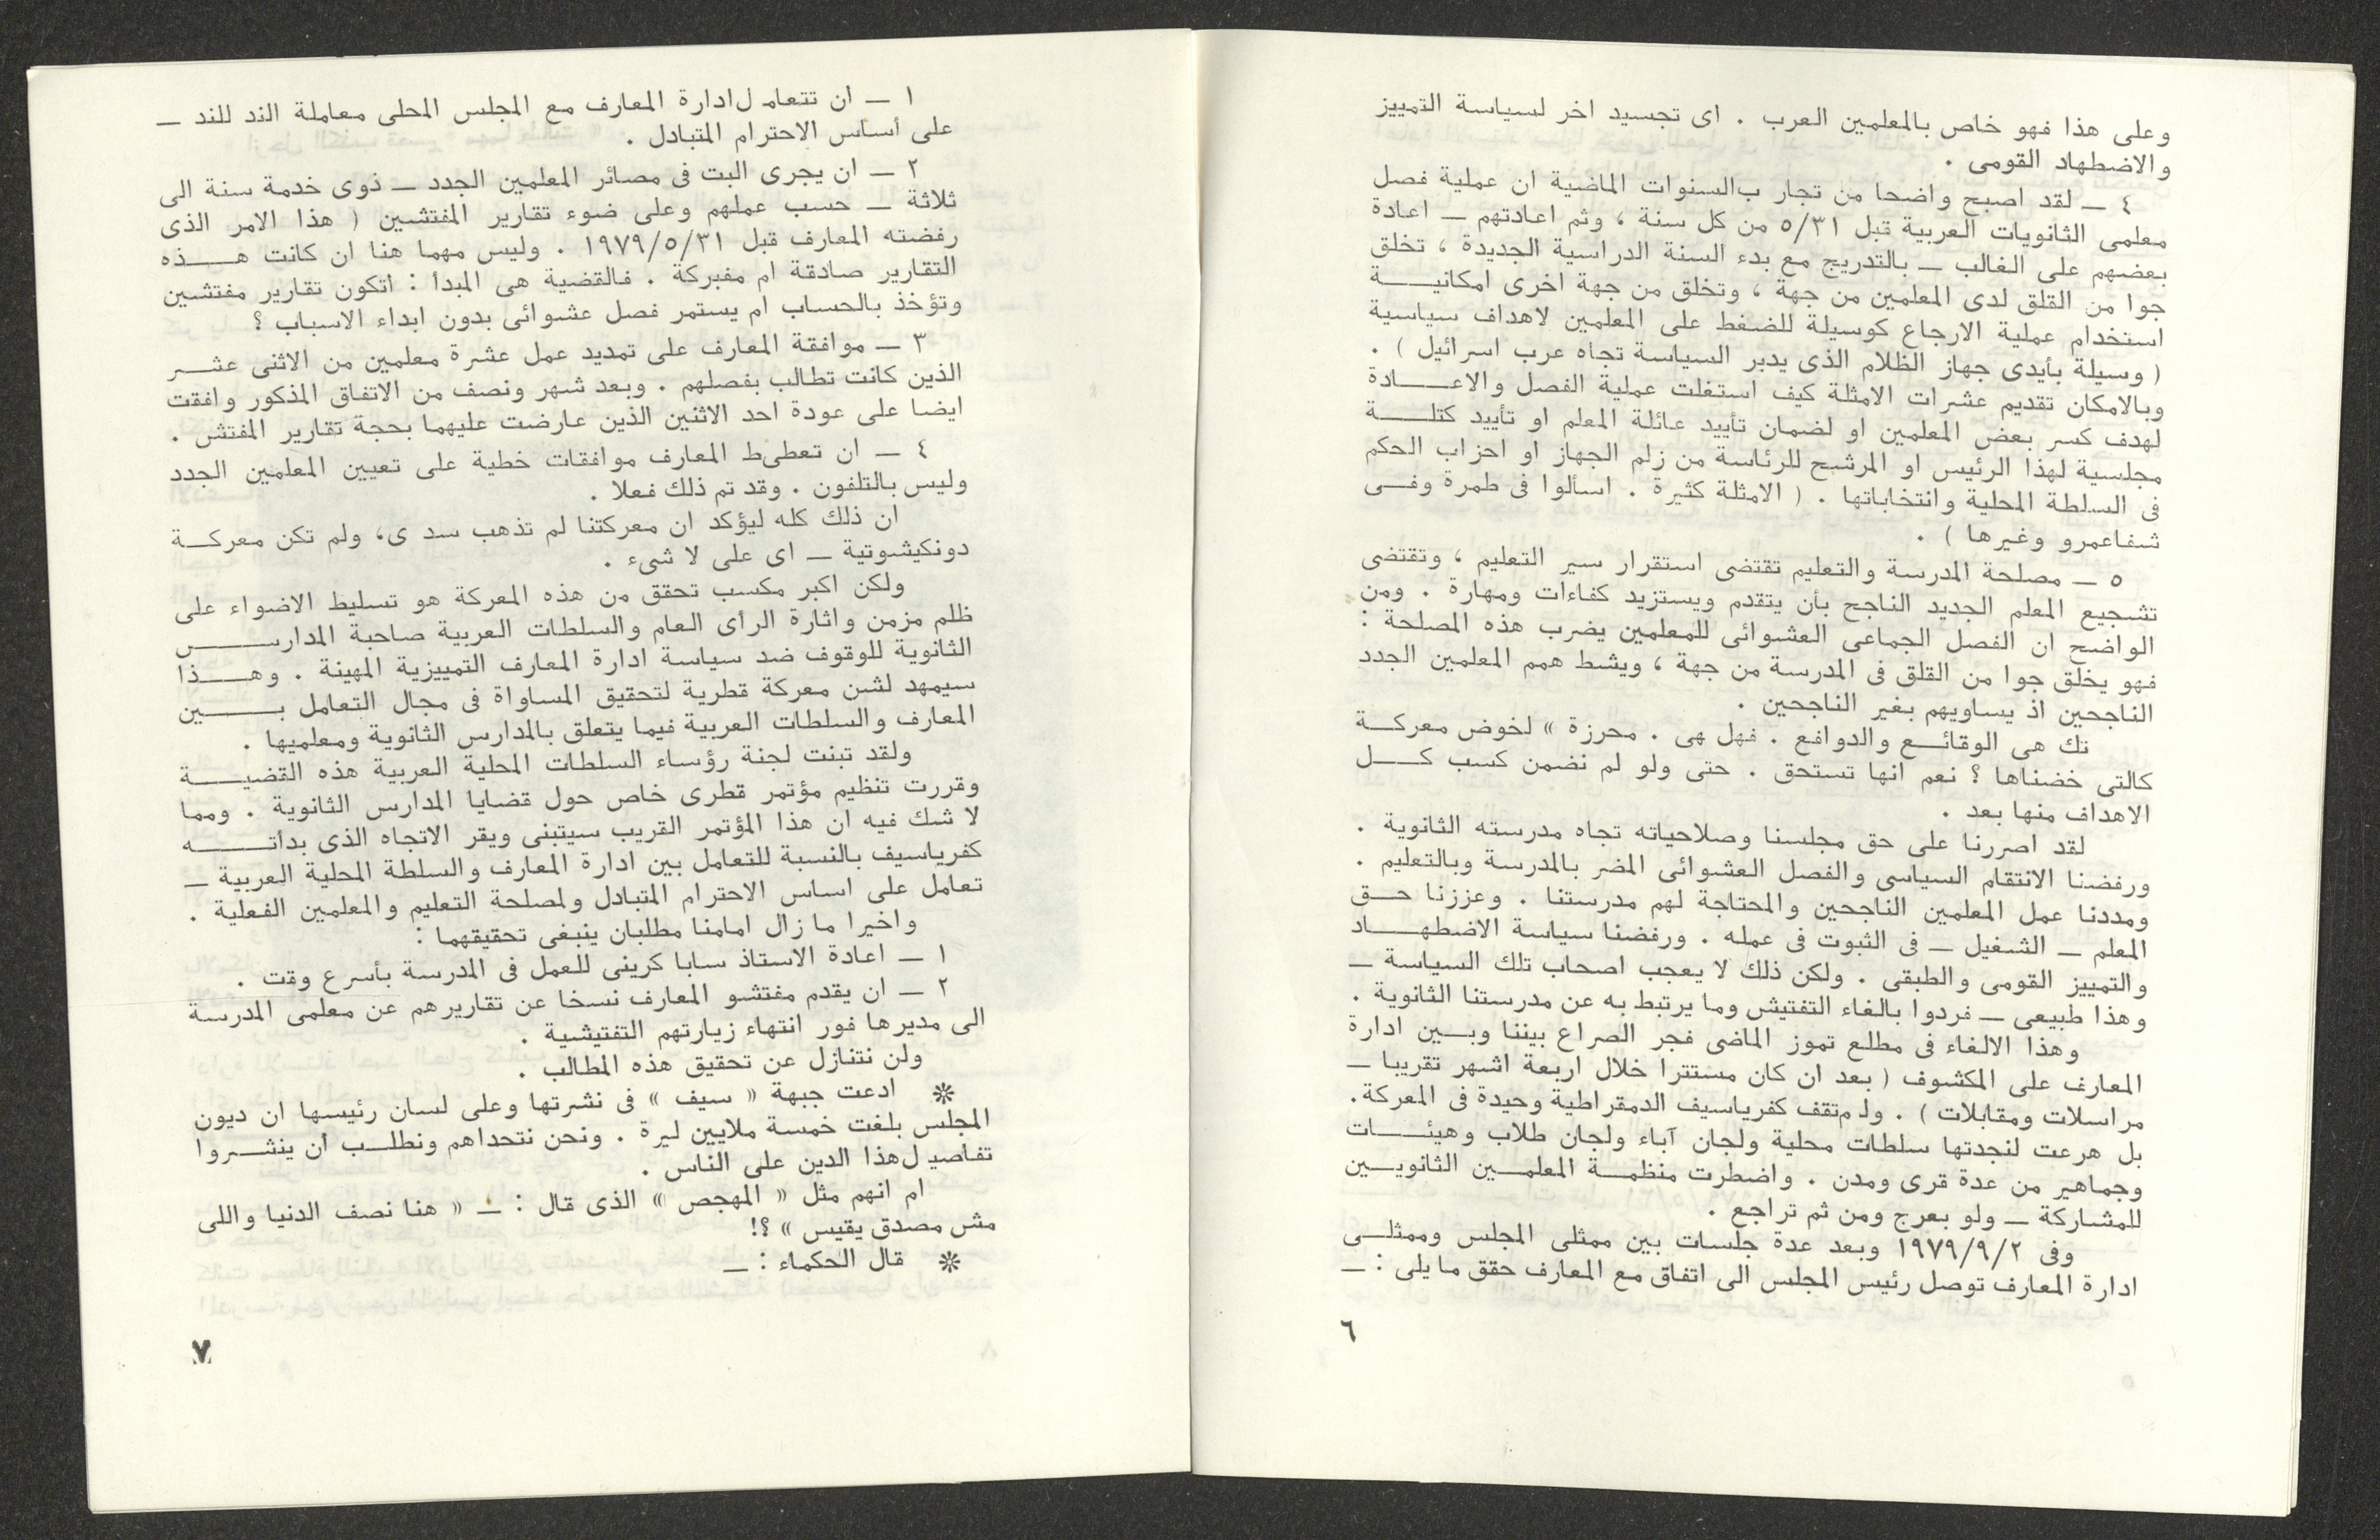 وعلى هذا فهو خاص بالمعلمين العرب . اى تجسيد اخر لسياسة التمييز
والاضطهاد القومى .
٤ ــ لقد اصبح واضحا من تجار بالسنوات الماضية ان عملية فصل
معلمى الثانويات العربية قبل ٥/٣١ من كل سنة ، وثم اعادتهم ــ اعادة
بعضهم على الغالب ــ بالتدريج مع بدء السنة الدراسية الجديدة ، تخلق
جوا من القلق لدى المعلمين من جهة ، وتخلق من جهة اخرى امكانيــــة
استخدام عملية الارجاع كوسيلة للضغط على المعلمين لاهداف سياسية
( وسيلة بأيدى جهاز الظلام الذى يدير السياسة تجاه عرب اسرائيل ) .
وبالامكان تقديم عشرات الامثلة كيف استغلت عملية الفصل والاعــــادة
لهدف كسر بعض المعلمين او لضمان تأييد عائلة المعلم او تأييد كتلــــة
مجلسية لهذا الرئيس او المرشح للرئاسة من زلم الجهاز او احزاب الحكم
فى السلطة المحلية وانتخاباتها . ( الامثلة كثيرة . اسألوا فى طمرة وفــى
شفاعمرو وغيرها ) .
٥ ــ مصلحة المدرسة والتعليم تقتضى استقرار سير التعليم ، وتقتضى
تشجيع المعلم الجديد الناجح بأن يتقدم ويستزيد كفاءات ومهارة . ومن
الواضح ان الفصل الجماعى العشوائى للمعلمين يضرب هذه المصلحة :
فهو يخلق جوا من القلق فى المدرسة من جهة ، ويشط همم المعلمين الجدد
الناجحين اذ يساويهم بغير الناجحين .
تك هى الوقائــع والدوافع . فهل هى . محرزة » لخوض معركــة
كالتى خضناها ؟ نعم انها تستحق . حتى ولو لم نضمن كسب كــــل
الاهداف منها بعد .
لقد اصررنا على حق مجلسنا وصلاحياته تجاه مدرسته الثانوية .
ورفضنا الانتقام السياسى والفصل العشوائى المضر بالمدرسة وبالتعليم .
ومددنا عمل المعلمين الناجحين والمحتاجة لهم مدرستنا . وعززنا حــق
المعلم ــ الشغيل ــ فى الثبوت فى عمله . ورفضنا سياسة الاضطهــــاد
والتمييز القومى والطبقى . ولكن ذلك لا يعجب اصحاب تلك السياسة ــ
وهذا طبيعى ــ فردوا بالغاء التفتيش وما يرتبط به عن مدرستنا الثانوية .
وهذا الالغاء فى مطلع تموز الماضى فجر الصراع بيننا وبــين ادارة
المعارف على المكشوف ( بعد ان كان مستترا خلال اربعة اشهر تقريبا ــ
مراسلات ومقابلات ) . ولـ متقف كفرياسيف الدمقراطية وحيدة فى المعركة.
بل هرعت لنجدتها سلطات محلية ولجان آباء ولجان طلاب وهيئــــات
وجماهير من عدة قرى ومدن . واضطرت منظمــة المعلمــين الثانويــين
للمشاركة ــ ولو بعرج ومن ثم تراجع .
وفى ١٩٧٩/٩/٢ وبعد عدة جلسات بين ممثلى المجلس وممثلــى
ادارة المعارف توصل رئيس المجلس الى اتفاق مع المعارف حقق ما يلى : ــ
٦
١ ــ ان تتعامـ لادارة المعارف مع المجلس المحلى معاملة الند للند ــ
على أساس الاحترام المتبادل .
٢ ــ ان يجرى البت فى مصائر المعلمين الجدد ــ ذوى خدمة سنة الى
ثلاثة ــ حسب عملهم وعلى ضوء تقارير المفتشين ( هذا الامر الذى
رفضته المعارف قبل ١٩٧٩/٥/٣١ . وليس مهما هنا ان كانت هــــذه
التقارير صادقة ام مفبركة . فالقضية هى المبدأ : اتكون تقارير مفتشين
وتؤخذ بالحساب ام يستمر فصل عشوائى بدون ابداء الاسباب ؟
٣ ــ موافقة المعارف على تمديد عمل عشرة معلمين من الاثنى عشــر
الذين كانت تطالب بفصلهم . وبعد شهر ونصف من الاتفاق المذكور وافقت
ايضا على عودة احد الاثنين الذين عارضت عليهما بحجة تقارير المفتش .
٤ ــ ان تعطىط المعارف موافقات خطية على تعيين المعلمين الجدد
وليس بالتلفون . وقد تم ذلك فعلا .
ان ذلك كله ليؤكد ان معركتنا لم تذهب سد ى، ولم تكن معركــة
دونكيشوتية ــ اى على لا شىء .
ولكن اكبر مكسب تحقق من هذه المعركة هو تسليط الاضواء على
ظلم مزمن واثارة الرأى العام والسلطات العربية صاحبة المدارــــس
الثانوية للوقوف ضد سياسة ادارة المعارف التمييزية المهينة . وهــــذا
سيمهد لشن معركة قطرية لتحقيق المساواة فى مجال التعامل بــــين
المعارف والسلطات العربية فيما يتعلق بالمدارس الثانوية ومعلميها .
ولقد تبنت لجنة رؤساء السلطات المحلية العربية هذه القضيــــة
وقررت تنظيم مؤتمر قطرى خاص حول قضايا المدارس الثانوية . ومما
لا شك فيه ان هذا المؤتمر القريب سيتبنى ويقر الاتجاه الذى بداتــــه
كفرياسيف بالنسبة للتعامل بين ادارة المعارف والسلطة المحلية العربية ــ
تعامل على اساس الاحترام المتبادل ولمصلحة التعليم والمعلمين الفعلية .
واخيرا ما زال امامنا مطلبان ينبغى تحقيقهما :
١ ــ اعادة الاستاذ سابا كرينى للعمل فى المدرسة بأسرع وقت .
٢ ــ ان يقدم مفتشو المعارف نسخا عن تقاريرهم عن معلمى المدرسة
الى مديرها فور انتهاء زيارتهم التفتيشية .
ولن نتنازل عن تحقيق هذه المطالب .
❊ ادعت جبهة « سيف » فى نشرتها وعلى لسان رئيسها ان ديون
المجلس بلغت خمسة ملايين ليرة . ونحن نتحداهم ونطلــب ان ينشــروا
تفاصيـ لهذا الدين على الناس .
ام انهم مثل « المهجص » الذى قال : ــ « هنا نصف الدنيا واللى
مش مصدق يقيس » ؟!
❊ قال الحكماء : ــ
٧